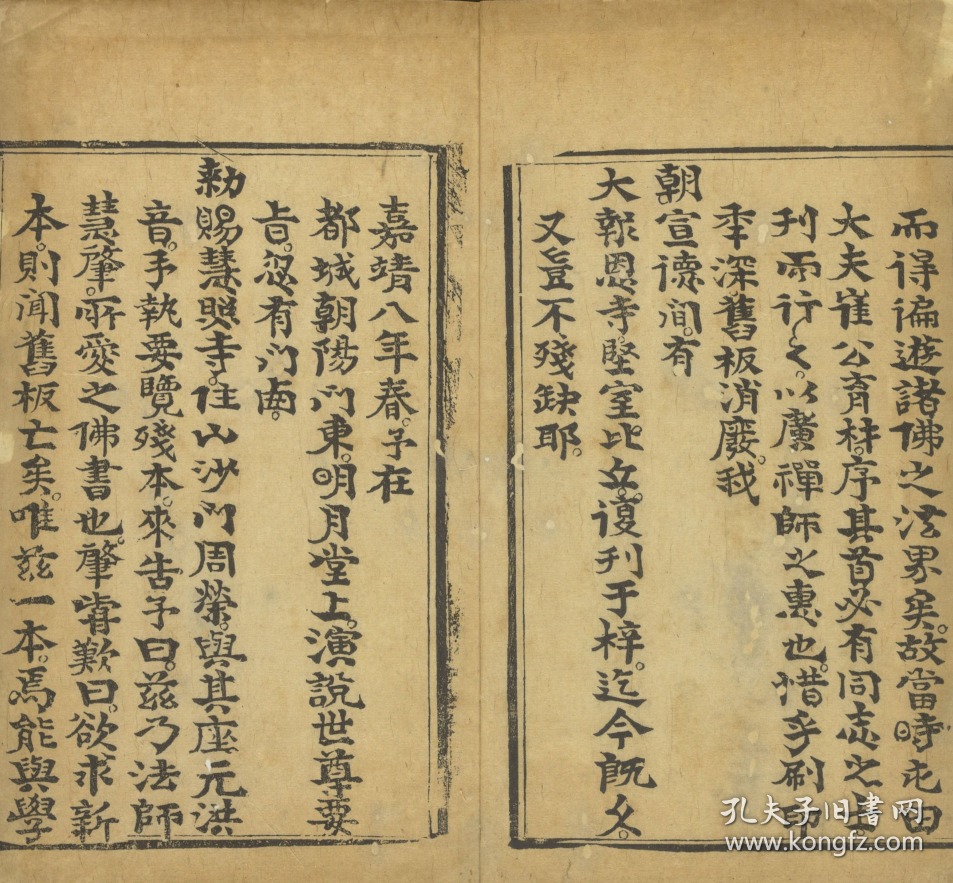 而得徧遊諸佛之法界矣。故當時屯田
大夫崔公育材。序其首必有同志之士。
刋而行之。以廣禪師之惠也。惜乎刷印
年深舊板消廢。我
朝宣德間。有
大報恩寺。堅室比丘。復刋于梓。迄今既久。
又豈不殘缺耶。
嘉靖八年春。予在
都城朝陽門東。明月堂上。演說世尊要
旨。忽有門
勅賜慧照寺。住山沙門周榮。與其座元洪
音。手執要覽殘本。來告予曰。茲乃法師
慧肇。所愛之佛書也。肇嘗歎曰。欲求新
本。則聞舊板亡矣。唯茲一本。焉能與學
孔夫子旧书网
www.kongfz.com